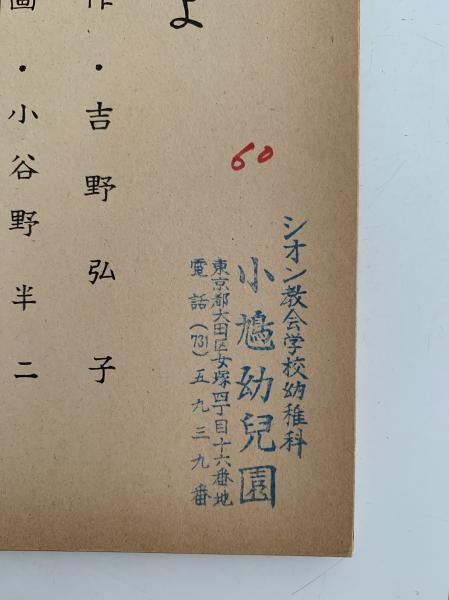 よ
作・吉野弘子
画・小谷野半二
60
シオン教会学校幼稚科
小鳩幼兒園
東京都大田区女塚四丁目十六番地
電話(731)五九三九番